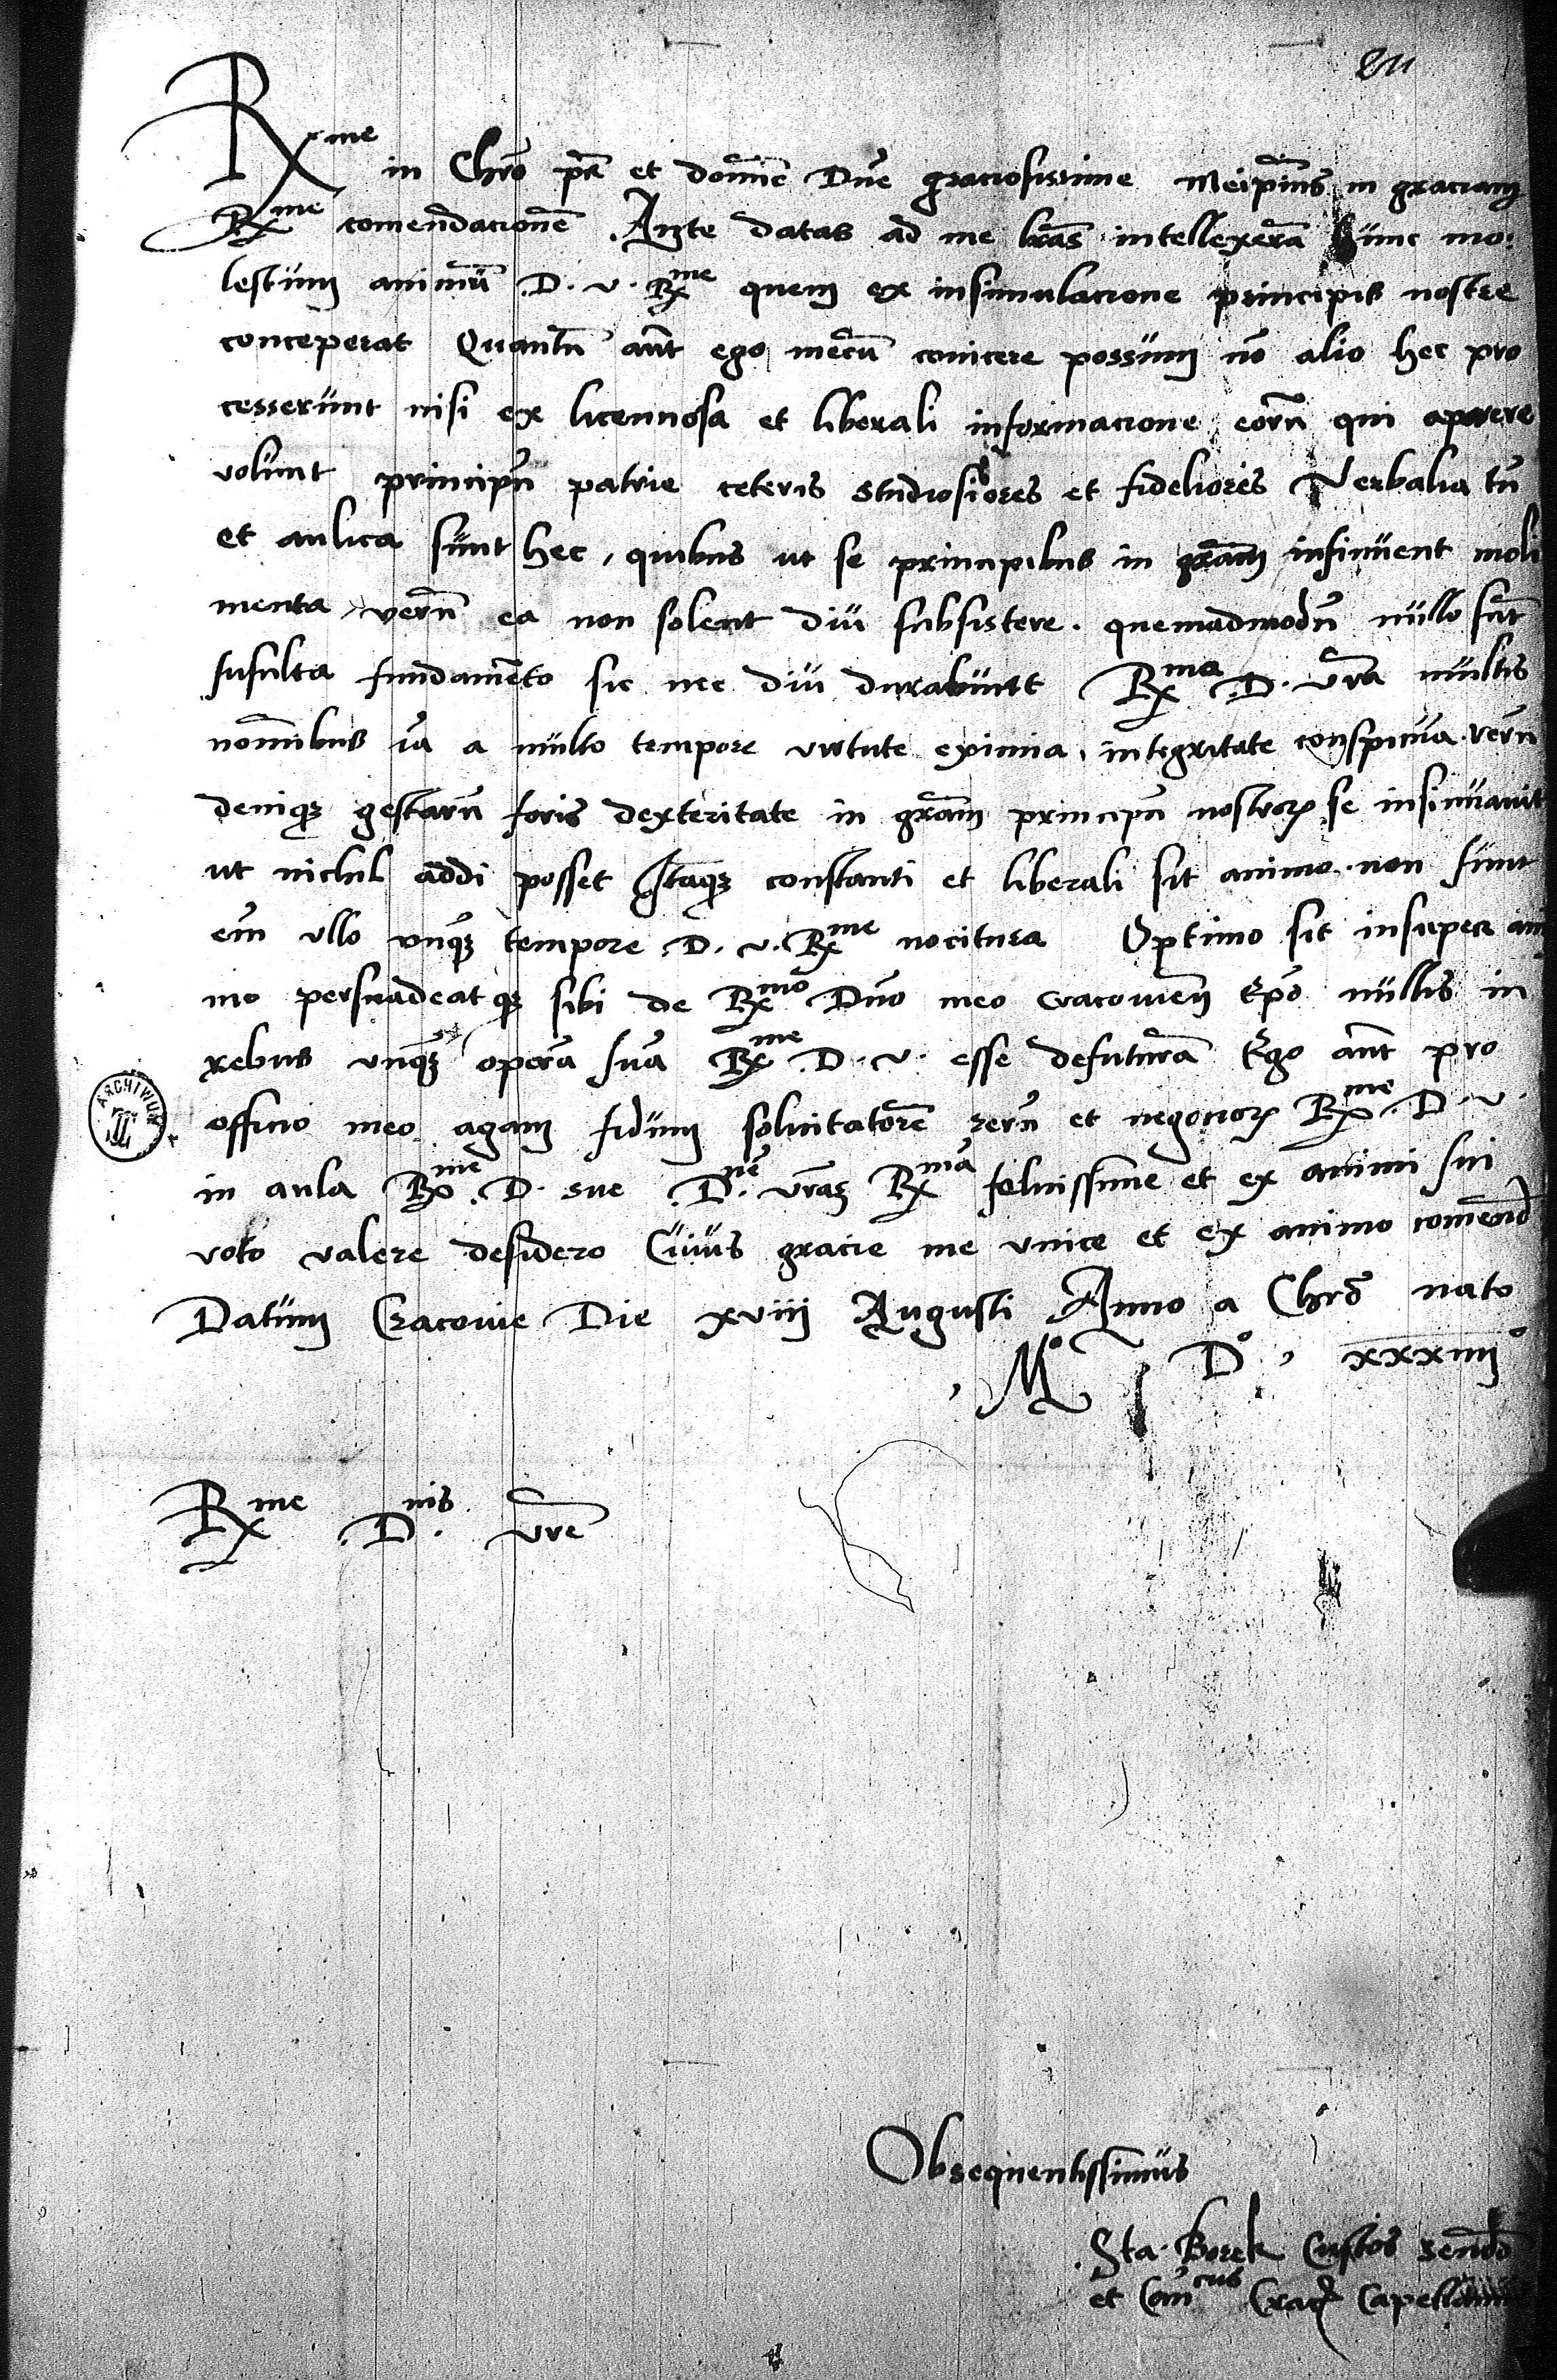 R me in Chro pr̃e et domine Dñe graciosissime Meip̃ius in graciam
R me comendacionẽ Ante datas ad me lr̃as intellexerã hunc mo:
lestum animũ D. v. R me quem ex insimulacione principis nostre
conceperat Quantũ aũt ego mecũ conicere possum nõ alio hec pro
cesserunt nisi ex licenciosa et liberali informacione eorũ qui apparere
volunt principũ patrie ceteris studiosiores et fideliores Verbalia tñ
et aulica sunt hec, quibus ut se principibus in grãm insinuent moli
menta verũ ea non solent diu subsistere. quemadmodũ nullo sũt
fufulta fundamẽto sic nec diu durabuntt R ma D. vr̃a multis
noĩnibus iã a multo tempore virtute eximia, integritate conspicua. rerũ
deniqz gestarũ foris dexteritate in grãm principũ nostroꝝ se insinuavit
ut nichil addi posset Itaqz constanti et liberali sit animo. non sunt
eĩm ullo unqz tempore D. v. R me nocitura Optimo sit insuper ani
mo persuadeat qz sibi de R mo Dño meo cracovieñ Ep̃o nullis in
rebus unqz operã suã R me D. v. esse defuturã Ego aũt pro
officio meo agam fidum solicitatorẽ rerũ et negocioꝝ R me D. v.
in aula R me D. sue D. ne vr̃az R ma felicissime et ex animi sui
voto valere desidero Cuius gracie me unice et ex animo comend
Datum Cracovie Die xviii Augusti Anno a Chro nato
M° D° xxxiiii°
R me D. nis vr̃e
Obsequentissimus
Sta. Borek Custos send
et Can cus Crac Capellanus
ARCHIWUM